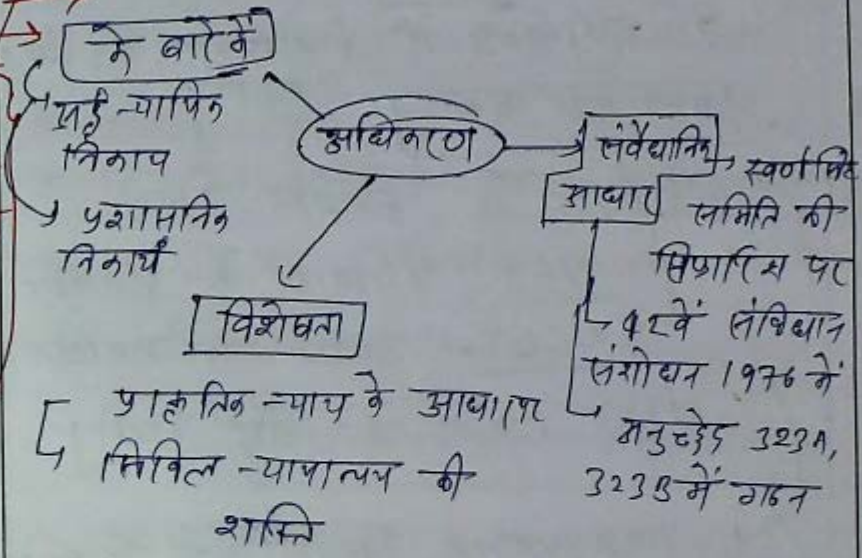 के बारे में
अर्द्ध न्यायिक
निकाय
प्रशासनिक
निकाय
अधिकरण
संवैधानिक
आधार
स्वर्ण सिंह
समिति की
सिफारिस पर
42वें संविधान
संशोधन 1976 में
अनुच्छेद 323A,
323B में गठन
विशेषता
प्राकृतिक न्याय के आधार पर
सिविल न्यायालय की
शक्ति